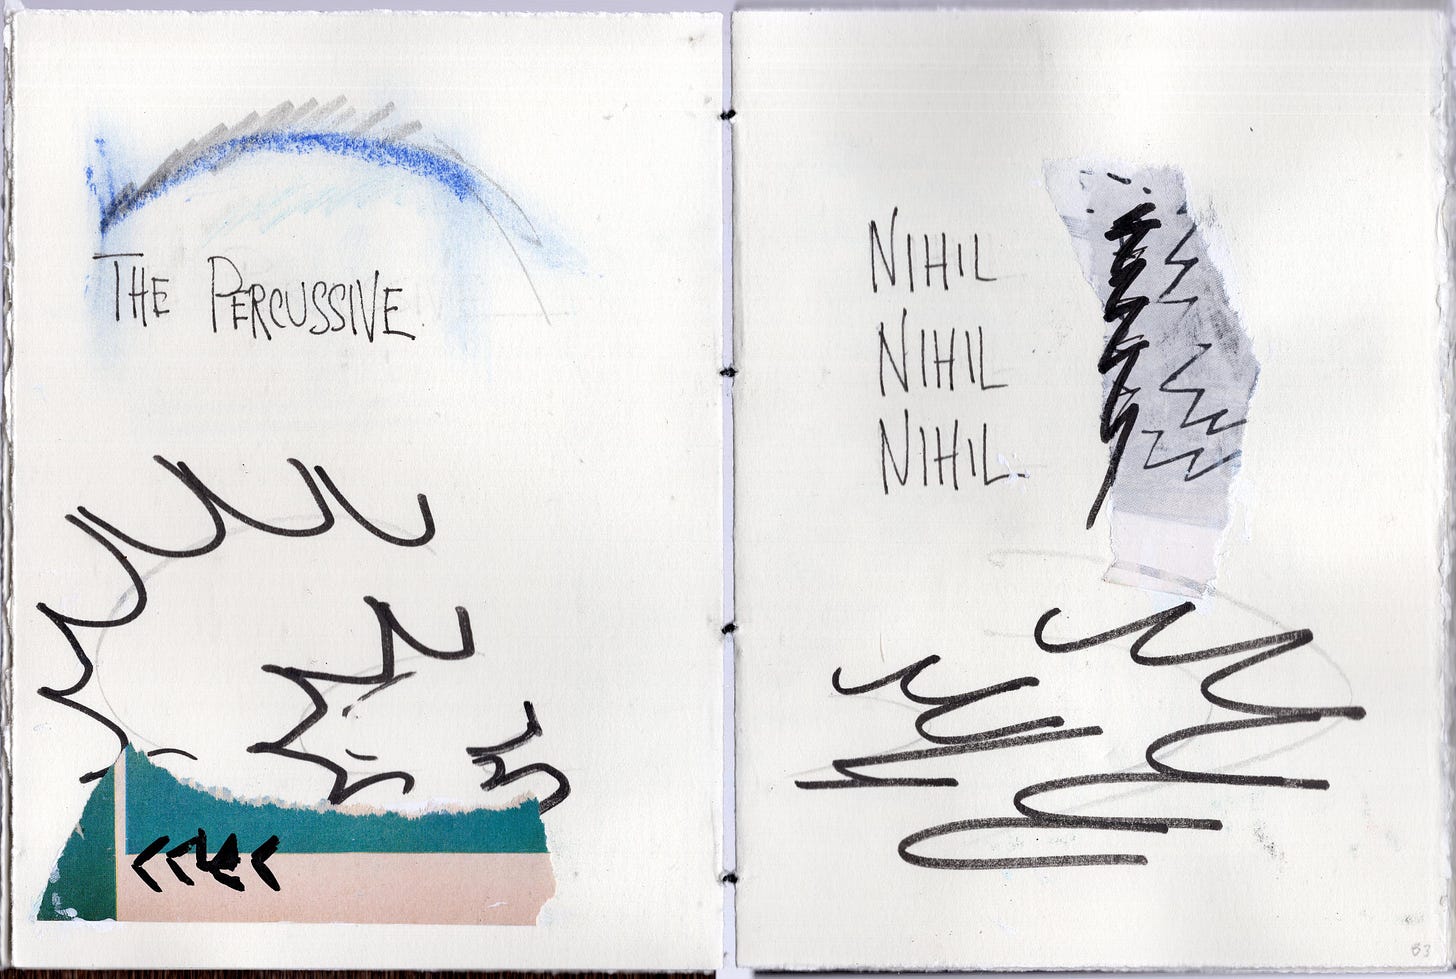 THE PERCUSSIVE.
NIHIL
NIHIL
NIHIL.
83